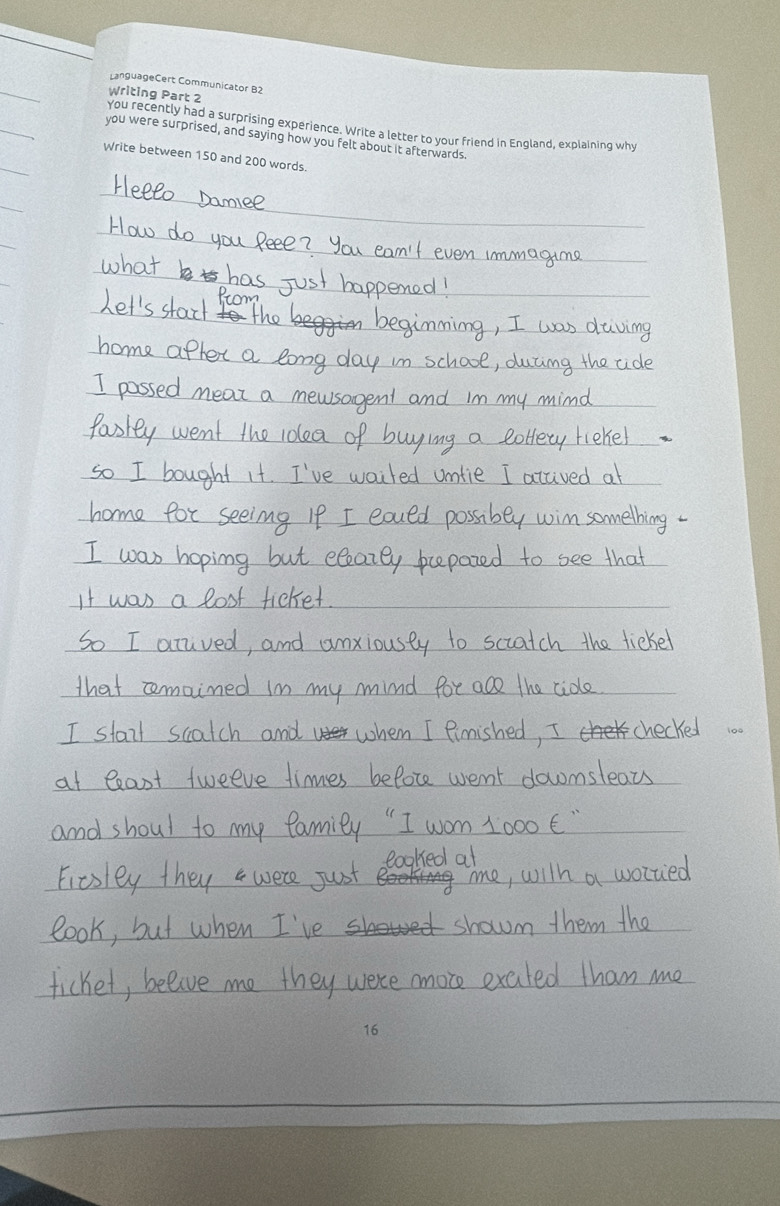 LanguageCert Communicator B2
Writing Part 2
You recently had a surprising experience. Write a letter to your friend in England, explaining why
you were surprised, and saying how you felt about it afterwards.
Write between 150 and 200 words.
Hello Daniel
How do you feel? You can't even immagine
what has just happened!
Let's start from the beggin beginning, I was driving
home after a long day in school, during the ride
I passed near a newsagent and in my mind
fastly went the idea of buying a lottery ticket
so I bought it. I've waited until I arrived at
home for seeing if I could possibly win something
I was hoping but clearly prepared to see that
it was a lost ticket.
So I arrived, and anxiously to scratch the ticket
that remained in my mind for all the ride.
I start scatch and when I finished, I chek checked 100
at least twelve times before went downstears
and shout to my family "I won 1000 €"
Firsley they were just looking looked at me, with a worried
look, but when I've showed shown them the
ticket, belive me they were more excited than me
16